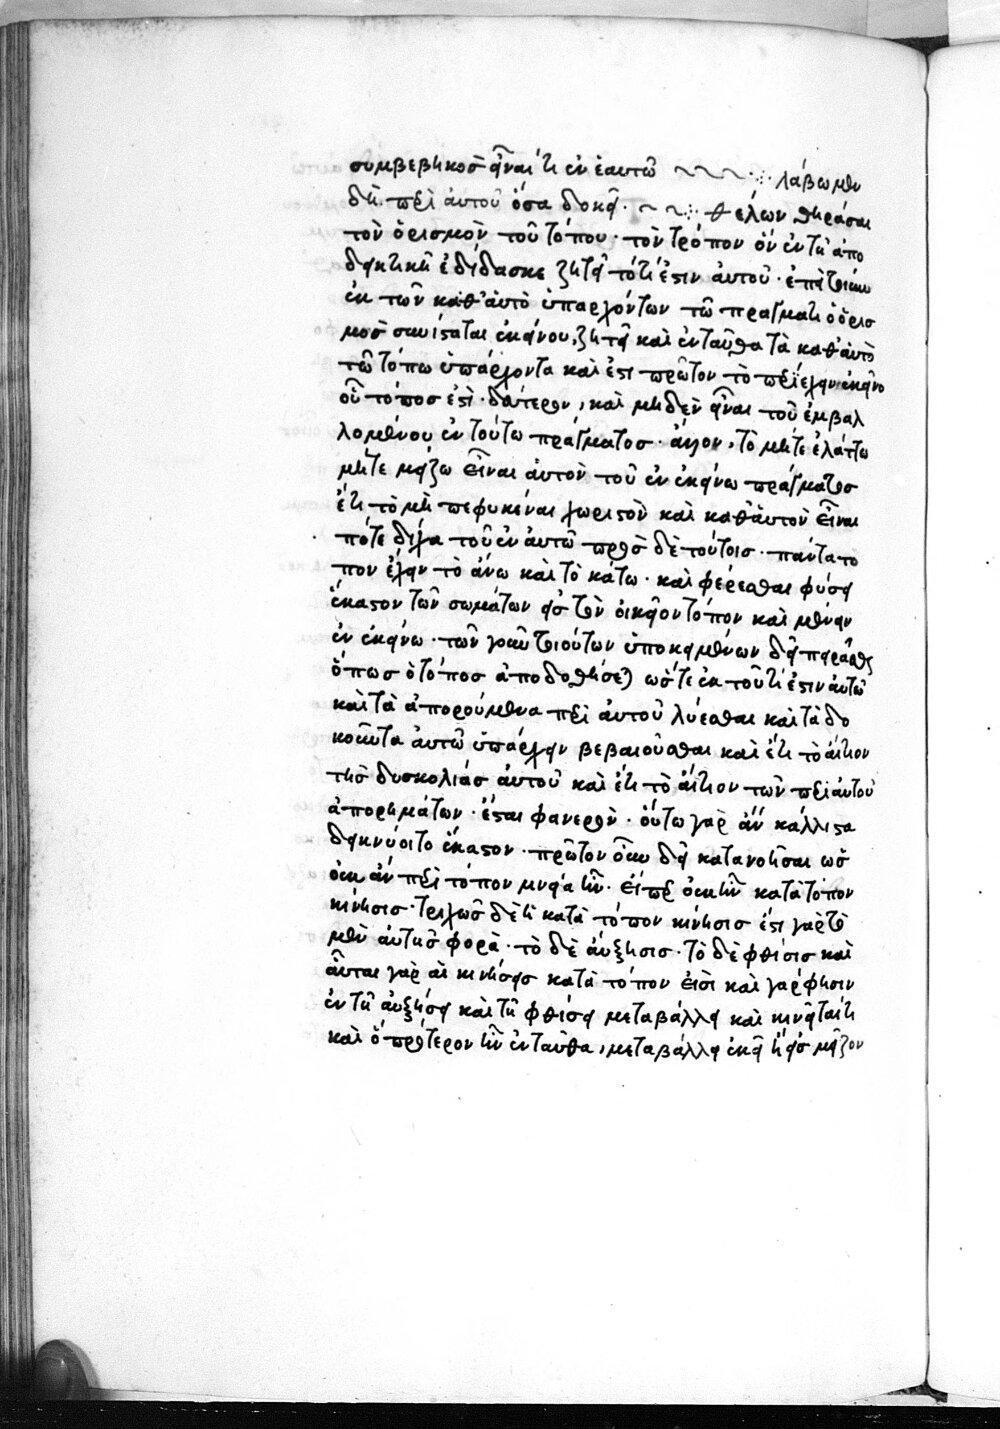 συμβεβηκὸσ εἶναί τι ἐν ἑαυτῶ λάβωμεν
δὴ περὶ αὐτοῦ ὅσα δοκεῖ · θέλων θηρᾶσαι
τὸν ὁρισμὸν τοῦ τόπου · τὸν τρόπον ὃν ἐν τῆ ἀπο
δεικτικῆ ἐδίδασκε ζητεῖ τὸ τί ἐστιν αὐτοῦ · ἐπεὶ τοίνυν
ἐκ τῶν καθ' αὑτὸ ὑπαρχόντων τῶ πράγματι ὁ ὁρισ
μὸσ συνίσταται ἐκείνου, ζητεῖ καὶ ἐνταῦθα τὰ καθ' αὑτὸ
τῶ τόπω ὑπάρχοντα καὶ ἔστι πρῶτον τὸ περιέχειν ἐκεῖνο
οὗ τόποσ ἐστὶ · δεύτερον, καὶ μηδὲν εἶναι τοῦ ἐμβαλ
λομένου ἐν τούτω πράγματοσ · ἄλλον, τὸ μήτε ἐλάττω
μήτε μείζω εἶναι αὐτὸν τοῦ ἐν ἐκείνω πράγματοσ
ἔτι τὸ μὴ πεφυκέναι χωριστὸν καὶ καθ' αὑτὸν εἶναι
πότε δίχα τοῦ ἐν αὐτῶ πρὸσ δὲ τούτοισ · πάντα τό
πον ἔχειν τὸ ἄνω καὶ τὸ κάτω · καὶ φέρεσθαι φύσει
ἕκαστον τῶν σωμάτων εἰσ τὸν οἰκεῖον τόπον καὶ μένειν
ἐν ἐκείνω · τῶν γοῦν τοιούτων ὑποκειμένων δεῖ πειρᾶσθαι
ὅπωσ ὁ τόποσ ἀποδοθήσεται ὥστε ἐκ τοῦ τί ἐστιν αὐτῶ
καὶ τὰ ἀπορούμενα περὶ αὐτοῦ λύεσθαι καὶ τὰ δο
κοῦντα αὐτῶ ὑπάρχειν βεβαιοῦσθαι καὶ ἔτι τὸ αἴτιον
τῆσ δυσκολίασ αὐτοῦ καὶ ἔτι τὸ αἴτιον τῶν περὶ αὐτοῦ
ἀπορημάτων · ἔσται φανερὸν · οὕτω γὰρ ἂν κάλλιστα
δεικνύοιτο ἕκαστον · πρῶτον οὖν δεῖ κατανοῆσαι ὡσ
οὐκ ἂν περὶ τόπον μνεία ἦν · εἴπερ οὐκ ἦν κατὰ τόπον
κίνησισ · τριχῶσ δὲ ἡ κατὰ τόπον κίνησισ ἔστι γὰρ τὸ
μὲν αὐτῆσ φορὰ · τὸ δὲ αὔξησισ · τὸ δὲ φθίσισ καὶ
αὗται γὰρ αἱ κινήσεισ κατὰ τόπον εἰσὶ καὶ γάρ φησιν
ἐν τῆ αὐξήσει καὶ τῆ φθίσει μεταβάλλει καὶ κινεῖταί τι
καὶ ὃ πρότερον ἦν ἐνταῦθα, μεταβάλλει ἐκεῖ ἢ εἰσ μεῖζον